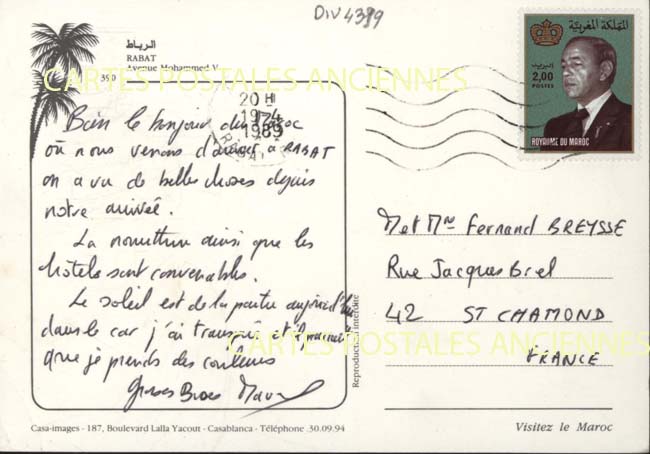 DIV 4389
الرباط
RABAT
Avenue Mohammed V
390
CARTES POSTALES ANCIENNES
20 H
19-4
1989
RABAT
المملكة المغربية
البريد
2,00
POSTES
ROYAUME DU MAROC
Bien le bonjour du Maroc
où nous venons d'arriver à RABAT
on a vu de belles choses depuis
notre arrivée.
La nourriture ainsi que les
hôtels sont convenables.
Le soleil est de la partie aujourd'hui
dans le car j'ai transpiré et il
que je prends des couleurs
Grosses Bises
M et Mme Fernand BREYSSE
Rue Jacques Brel
42 ST CHAMOND
FRANCE
CARTES POSTALES ANCIENNES
Reproduction interdite
Casa-images - 187, Boulevard Lalla Yacout - Casablanca - Téléphone .30.09.94
Visitez le Maroc